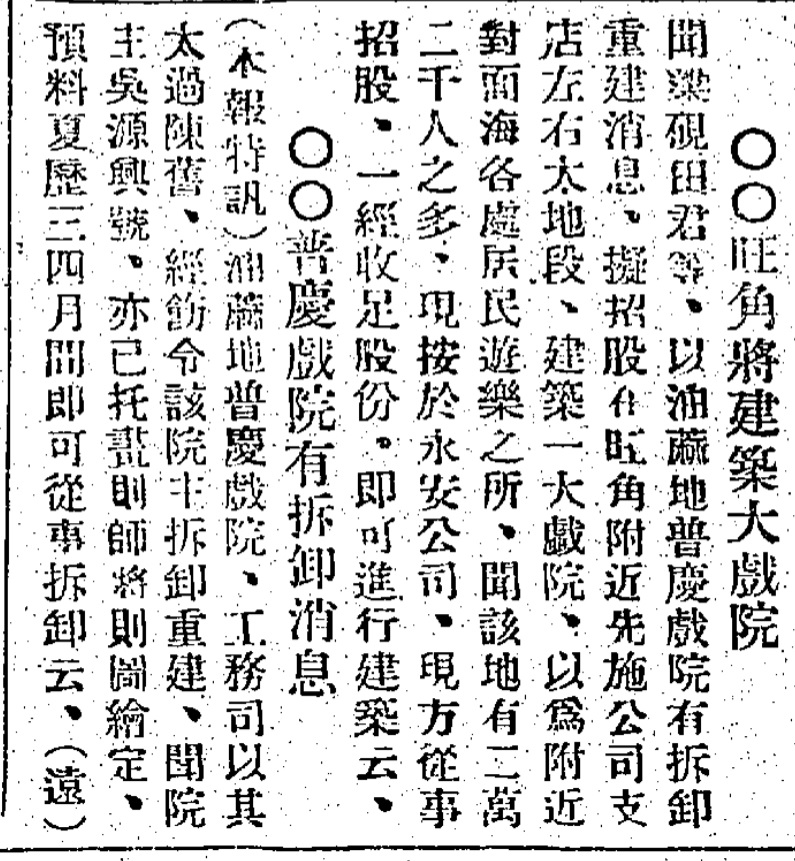 〇〇旺角將建築大戲院
聞梁硯田君等、以油蔴地普慶戲院有拆卸
重建消息、擬招股在旺角附近先施公司支
店左右大地段、建築一大戲院、以爲附近
對面海各處居民遊樂之所、聞該地有二萬
二千人之多、現按於永安公司、現方從事
招股、一經收足股份。即可進行建築云、
〇〇普慶戲院有拆卸消息
（本報特訊）油蔴地普慶戲院、工務司以其
太過陳舊、經飭令該院主拆卸重建、聞院
主吳源興號、亦已托畫則師將則圖繪定、
預料夏歷三四月間即可從事拆卸云、（遠）